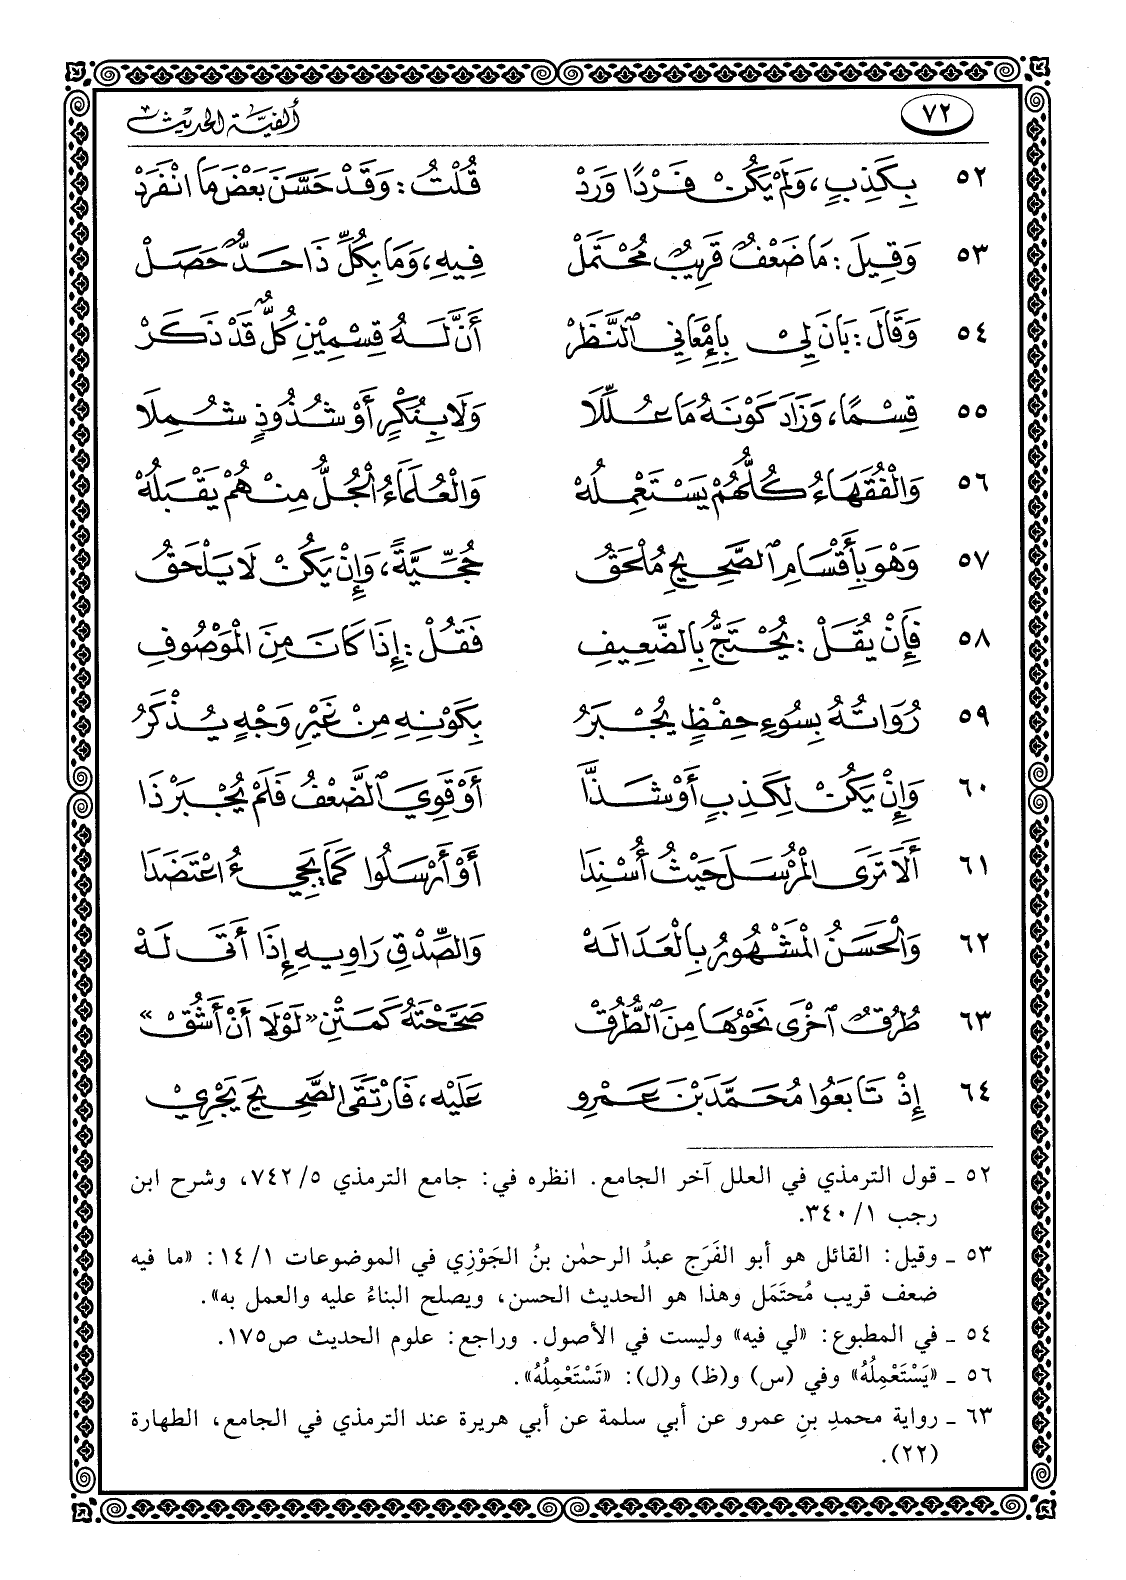 ٧٢ ألفية الحديث
٥٢ بِكَذِبٍ، وَلَمْ يَكُنْ فَرْدًا وَرَدْ قُلْتُ: وَقَدْ حَسَّنَ بَعْضَ مَا انْفَرَدْ
٥٣ وَقِيلَ: مَا ضَعْفٌ قَرِيبٌ مُحْتَمَلْ فِيهِ، وَمَا بِكُلِّ ذَا حَدٌّ حَصَلْ
٥٤ وَقَالَ: بَانَ لِيْ بِإِمْعَانِي ٱلنَّظَرْ أَنَّ لَهُ قِسْمَيْنِ كُلٌّ قَدْ ذَكَرْ
٥٥ قِسْمًا، وَزَادَ كَوْنَهُ مَا عُلِّلَا وَلَا بِنُكْرٍ أَوْ شُذُوذٍ شُمِلَا
٥٦ وَالْفُقَهَاءُ كُلُّهُمْ يَسْتَعْمِلُهْ وَالْعُلَمَاءُ الْجُلُّ مِنْهُمْ يَقْبَلُهْ
٥٧ وَهْوَ بِأَقْسَامِ ٱلصَّحِيحِ مُلْحَقُ حُجِّيَّةً، وَإِنْ يَكُنْ لَا يَلْحَقُ
٥٨ فَإِنْ يُقَلْ: يُحْتَجُّ بِالضَّعِيفِ فَقُلْ: إِذَا كَانَ مِنَ الْمَوْصُوفِ
٥٩ رُوَاتُهُ بِسُوءِ حِفْظٍ يُجْبَرُ بِكَوْنِهِ مِنْ غَيْرِ وَجْهٍ يُذْكَرُ
٦٠ وَإِنْ يَكُنْ لِكَذِبٍ أَوْ شَذَّا أَوْ قَوِيَ ٱلضَّعْفُ فَلَمْ يُجْبَرْ ذَا
٦١ أَلَا تَرَى الْمُرْسَلَ حَيْثُ أُسْنِدَا أَوْ أَرْسَلُوا كَمَا يَجِيءُ اعْتَضَدَا
٦٢ وَالْحَسَنُ الْمَشْهُورُ بِالْعَدَالَهْ وَالصِّدْقِ رَاوِيهِ إِذَا أَتَى لَهْ
٦٣ طُرُقٌ ٱخْرَى نَحْوُهَا مِنَ ٱلطُّرُقْ صَحَّحْتَهُ كَمَتْنِ «لَوْلَا أَنْ أَشُقْ»
٦٤ إِذْ تَابَعُوا مُحَمَّدَ بْنَ عَمْرِو عَلَيْهِ، فَارْتَقَى الصَّحِيحَ يَجْرِيْ
٥٢ ـ قول الترمذي في العلل آخر الجامع. انظره في: جامع الترمذي ٥/ ٧٤٢، وشرح ابن
رجب ١/ ٣٤٠.
٥٣ ـ وقيل: القائل هو أبو الفَرَج عبدُ الرحمٰن بنُ الجَوْزِي في الموضوعات ١/ ١٤: «ما فيه
ضعف قريب مُحتَمَل وهذا هو الحديث الحسن، ويصلح البناءُ عليه والعمل به».
٥٤ ـ في المطبوع: «لي فيه» وليست في الأصول. وراجع: علوم الحديث ص١٧٥.
٥٦ ـ «يَسْتَعْمِلُهُ» وفي (س) و(ظ) و(ل): «تَسْتَعْمِلُهُ».
٦٣ ـ رواية محمدِ بنِ عمرو عن أبي سلمة عن أبي هريرة عند الترمذي في الجامع، الطهارة
(٢٢).